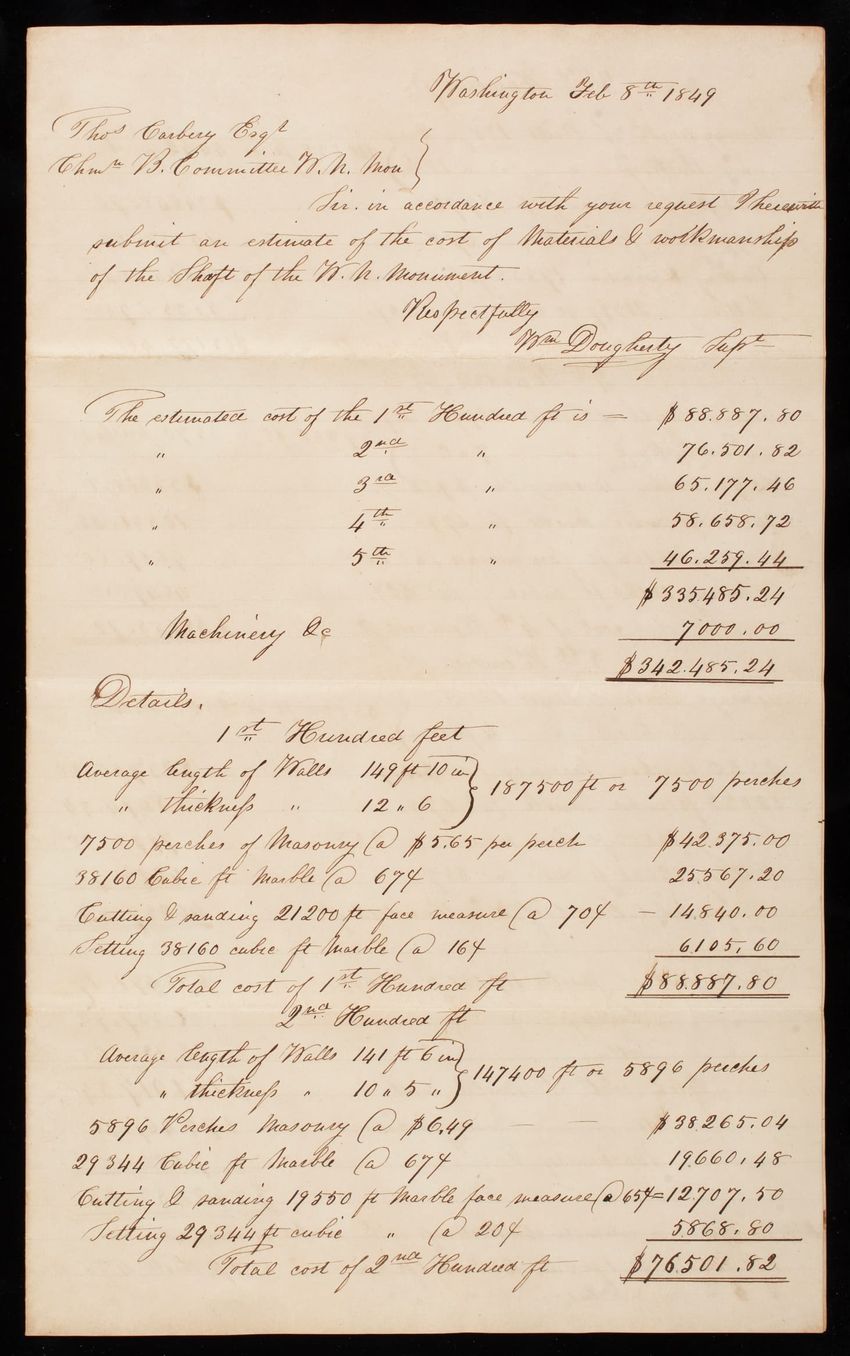 Washington Feb 8th 1849
Thos Carbery Esqr
Chmn B. Committee W. N. Mon
Sir. in accordance with your request I herewith
submit an estimate of the cost of Materials & workmanship
of the Shaft of the W. N. Monument.
Respectfully
Wm Dougherty Supt
The estimated cost of the 1st Hundred ft is — $88.887.80
" 2nd " 76.501.82
" 3rd " 65.177.46
" 4th " 58.658.72
" 5th " 46.259.44
$335485.24
Machinery &c 7000.00
$342.485.24
Details.
1st Hundred feet
Average length of Walls 149 ft 10 in } 187500 ft or 7500 perches
" thickness " 12 " 6
7500 perches of Masonry @ $5.65 per perch $42.375.00
38160 Cubic ft Marble @ 67¢ 25567.20
Cutting & sanding 21200 ft face measure @ 70¢ — 14.840.00
Setting 38160 cubic ft Marble @ 16¢ 6105.60
Total cost of 1st Hundred ft $88.887.80
2nd Hundred ft
Average length of Walls 141 ft 6 in } 147400 ft or 5896 perches
" thickness " 10 " 5 "
5896 Perches Masonry @ $6.49 — — $38.265.04
29344 Cubic ft Marble @ 67¢ 19.660.48
Cutting & sanding 19550 ft Marble face measure @ 65¢ = 12.707.50
Setting 29344 ft cubic " @ 20¢ 5868.80
Total cost of 2nd Hundred ft $76.501.82